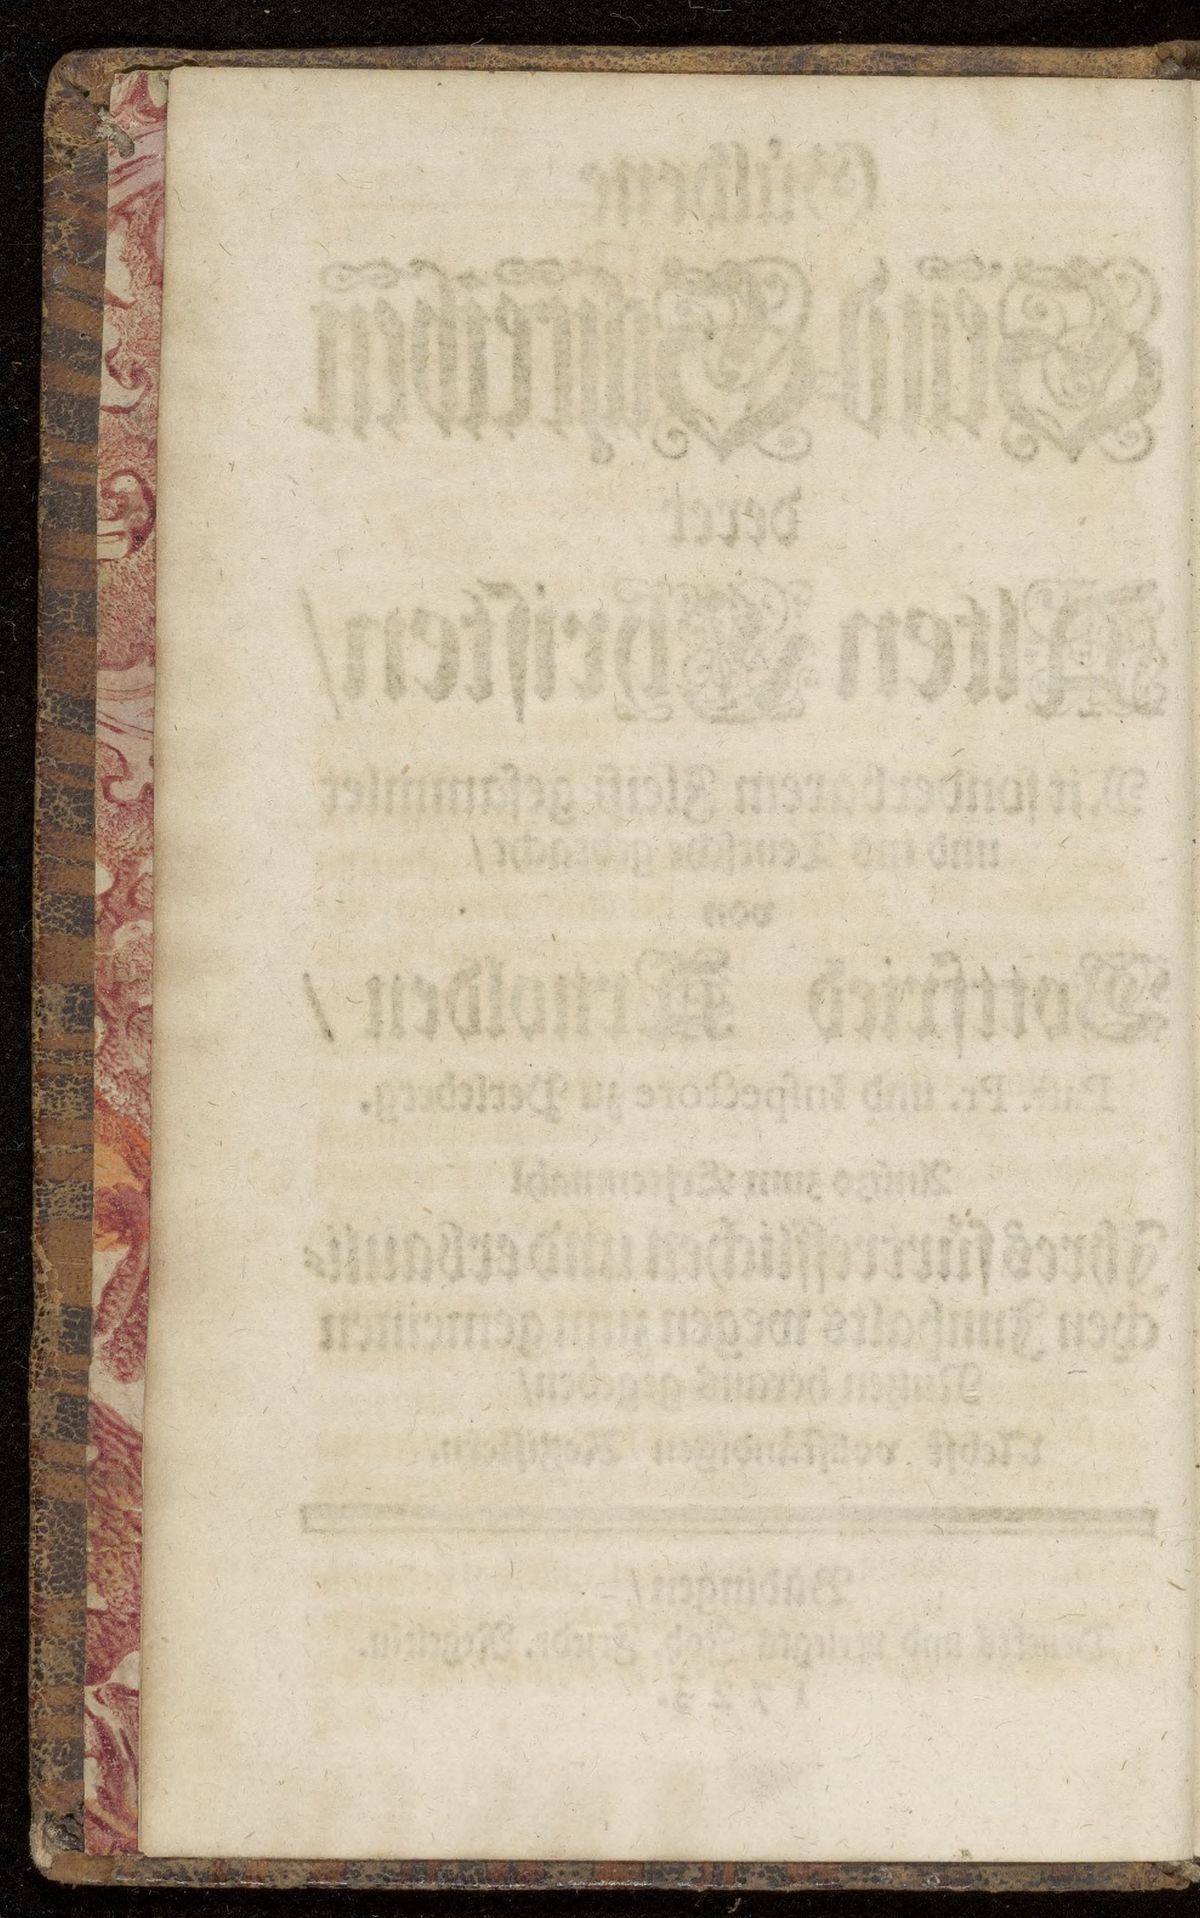 Güldene
Send-Schreiben
derer
Alten Christen/
Mit sonderbarem Fleiß gesammlet
und ins Teutsche gebracht/
von
Gottfried Arnolden/
Past. Pr. und Inspectore zu Perleberg.
Anitzo zum Erstenmahl
Ihres fürtrefflichen und erbauli-
chen Innhalts wegen zum gemeinen
Nutzen herauß gegeben/
Nebst vollständigen Registern.
Büdingen/
Druckts und verlegts Joh. Friedr. Regelein.
1723.